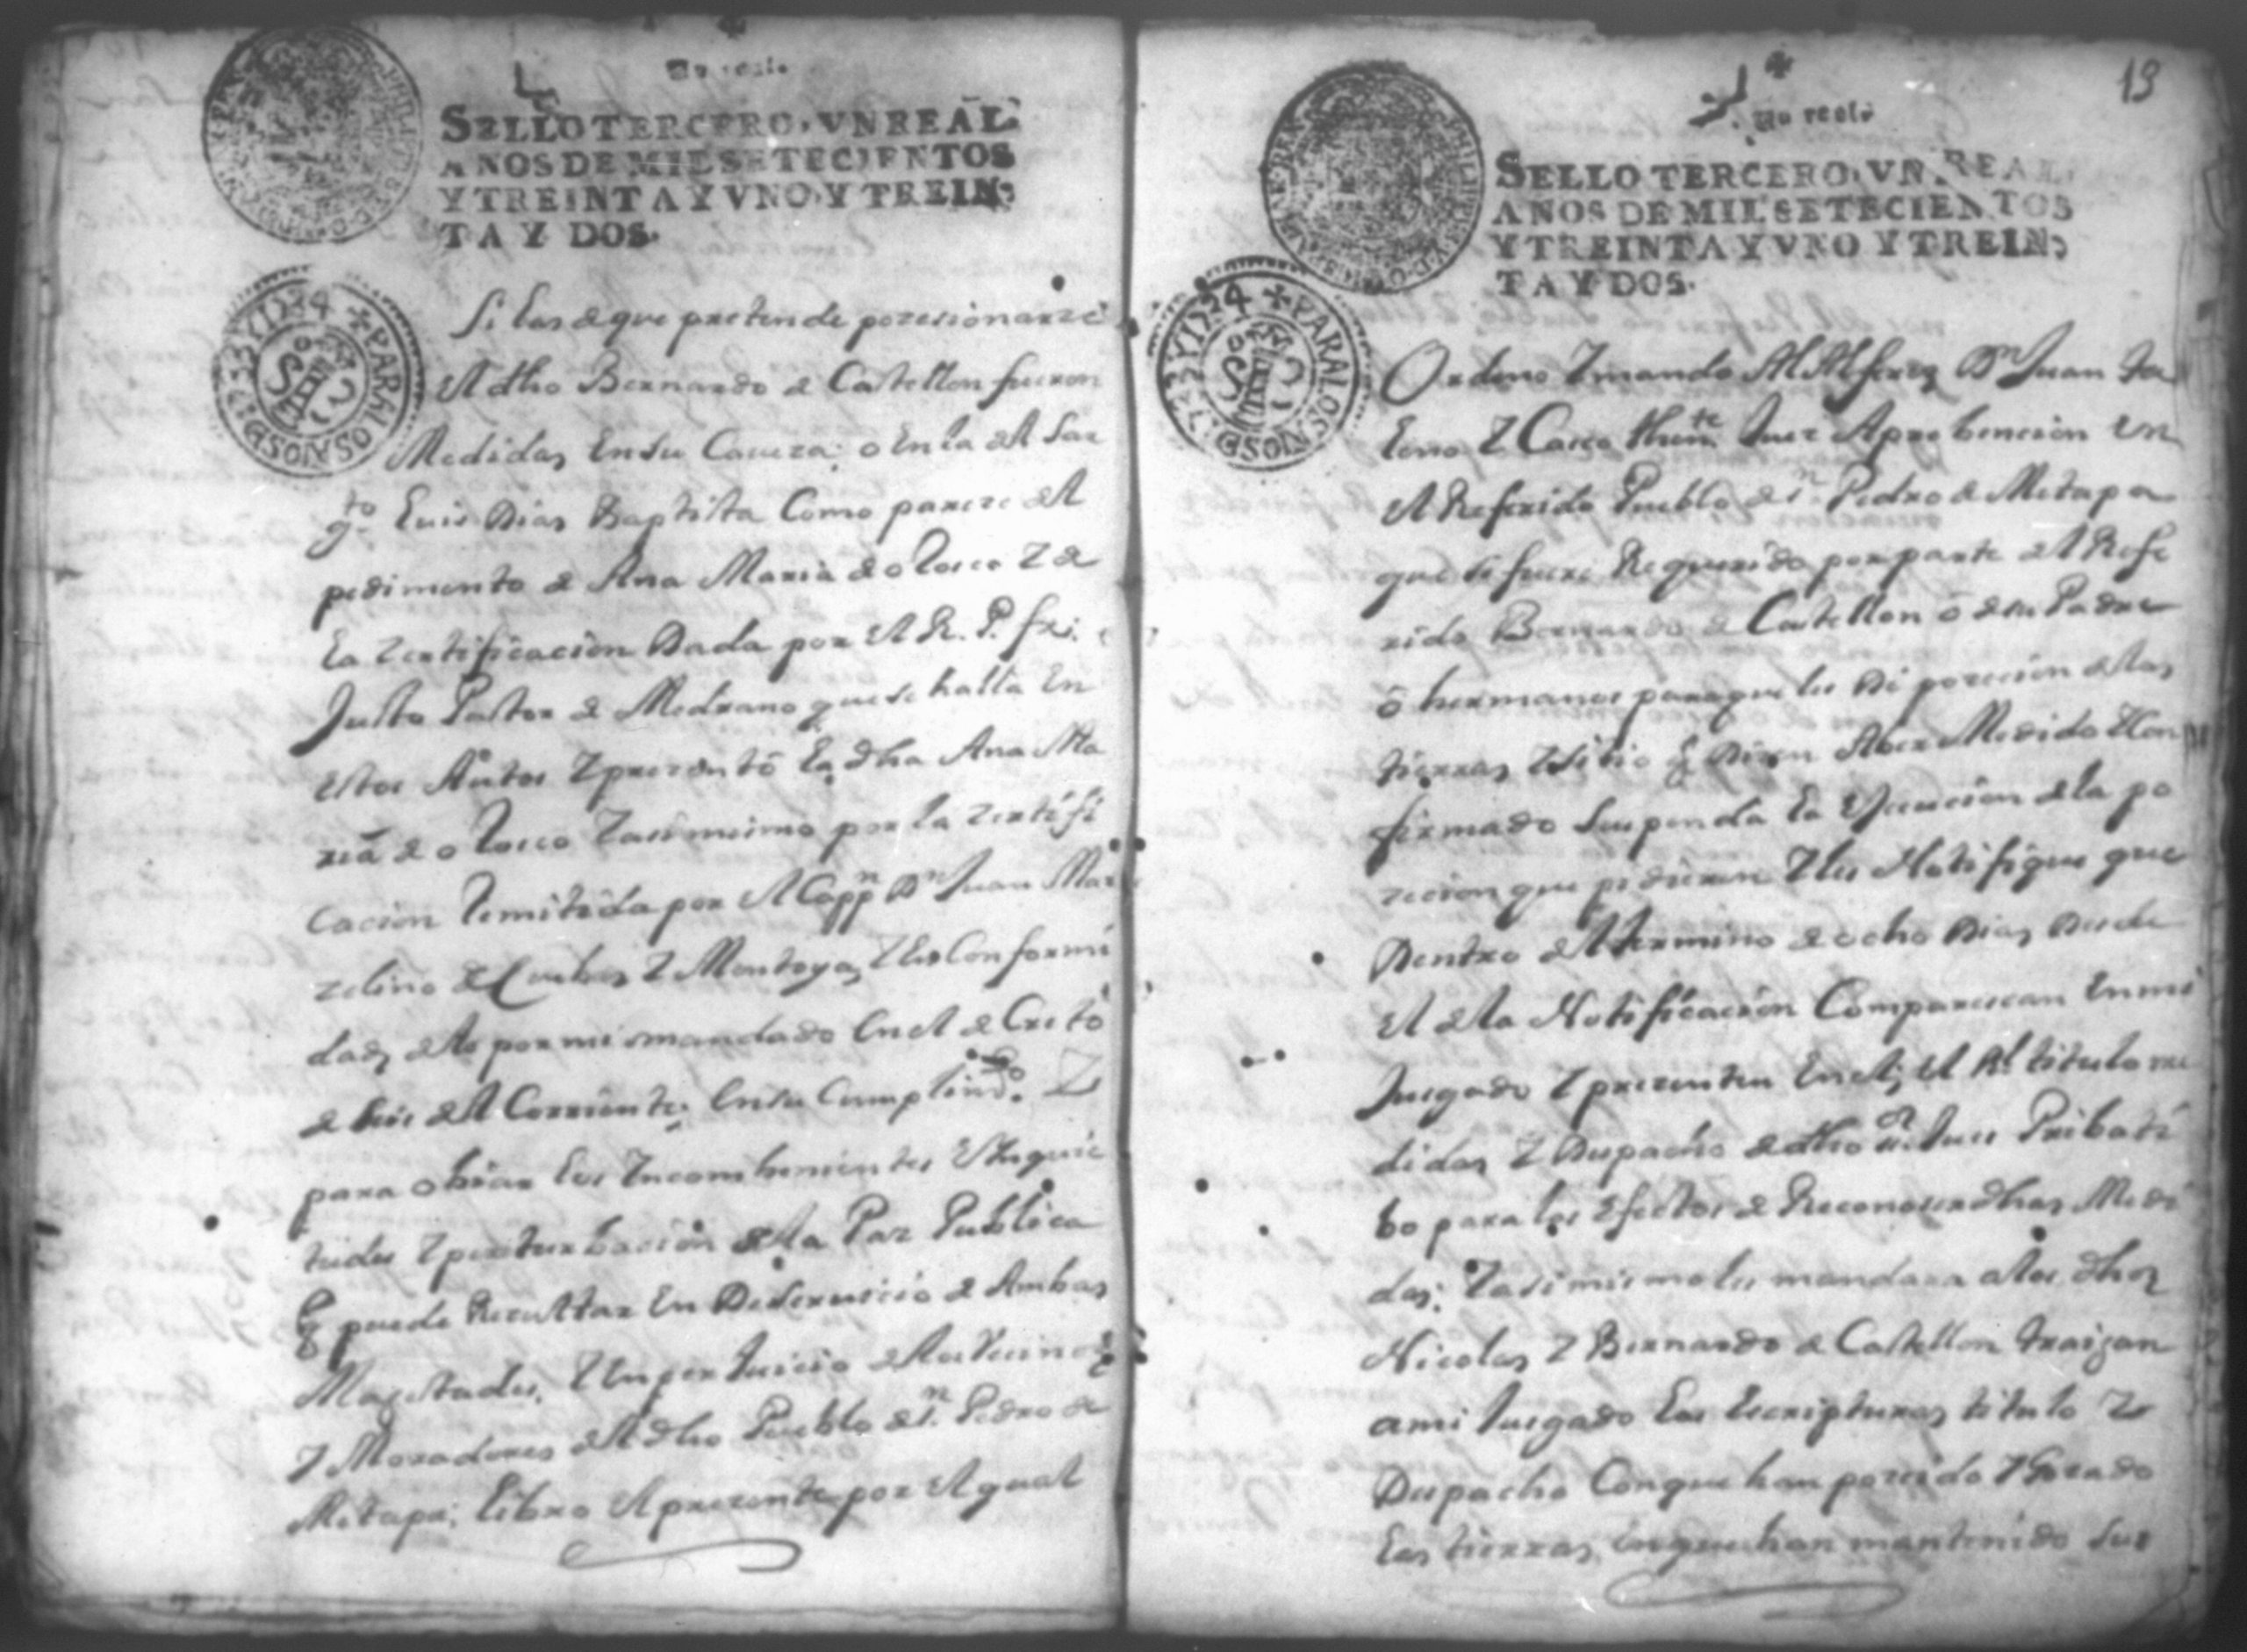 Un real.
SELLO TERCERO, VN REAL
AÑOS DE MIL SETECIENTOS
Y TREINTA Y VNO, Y TREIN-
TA Y DOS.
✠ PARA LOS AÑOS D 1733 Y 1734
Si las de que pretende pozesionarze
el dho Bernardo de Castellon fueron
Medidas en su Caueza; o en la del Sar
gto Luis Dias Baptista Como pareze del
pedimento de Ana Maria de olosco Y de
la Zertificacion Dada por el R. P. fr.
Justo Pastor de Medrano que se halla en
estos Autos Y prezentó la dha Ana Ma
ria de olosco Y asimismo por la Zertifi
cacion remitida por el Cappn Dn Juan Mar
zelino de Cuebas Y Montoya, Y en Conformi
dad de lo por mi mandado en el de Ocho
de heis del Corriente; en su Cumplimto. Y
para obiar los Yncombenientes e Ynquie
tudes Y perturbacion de la Paz Publica
q puede Rezultar en Deseruicio de Ambas
Magestades, Y en perJuicio de los Vecinos
Y Moradores del dho Pueblo de Sn Pedro de
Metapa; libro el prezente por el qual
13
Un real.
SELLO TERCERO, VN REAL
AÑOS DE MIL SETECIENTOS
Y TREINTA Y VNO Y TREIN-
TA Y DOS.
✠ PARA LOS AÑOS D 1733 Y 1734
Ordeno Y mando Al Alferez Dn Juan
Y Casco thinte Juez A prebencion en
el Referido Pueblo de Sn Pedro de Metapa
que si fuere Requerido por parte del Refe
rido Bernardo de Castellon ó de su Padre
ó hermanos para que les Dé pozecion de las
tierras Y sitio q Dizen Aber Medido Y Con
firmado suspenda la ejecucion de la po
zecion que pidieren Y les Notifique que
Dentro del termino de ocho Dias Desde
el de la Notificacion Comparescan en mi
Jusgado Y prezenten en el, el Rl titulo me
didas Y Despacho de dho Sr Jues Pribati
bo para los efectos de Reconoser dhas Medi
das; Y asimismo les mandara a los dhos
Nicolas Y Bernardo de Castellon traigan
a mi Jusgado las escripturas titulo Y
Despacho Con que han pozeido Y Gozado
las tierras en que han mantenido sus